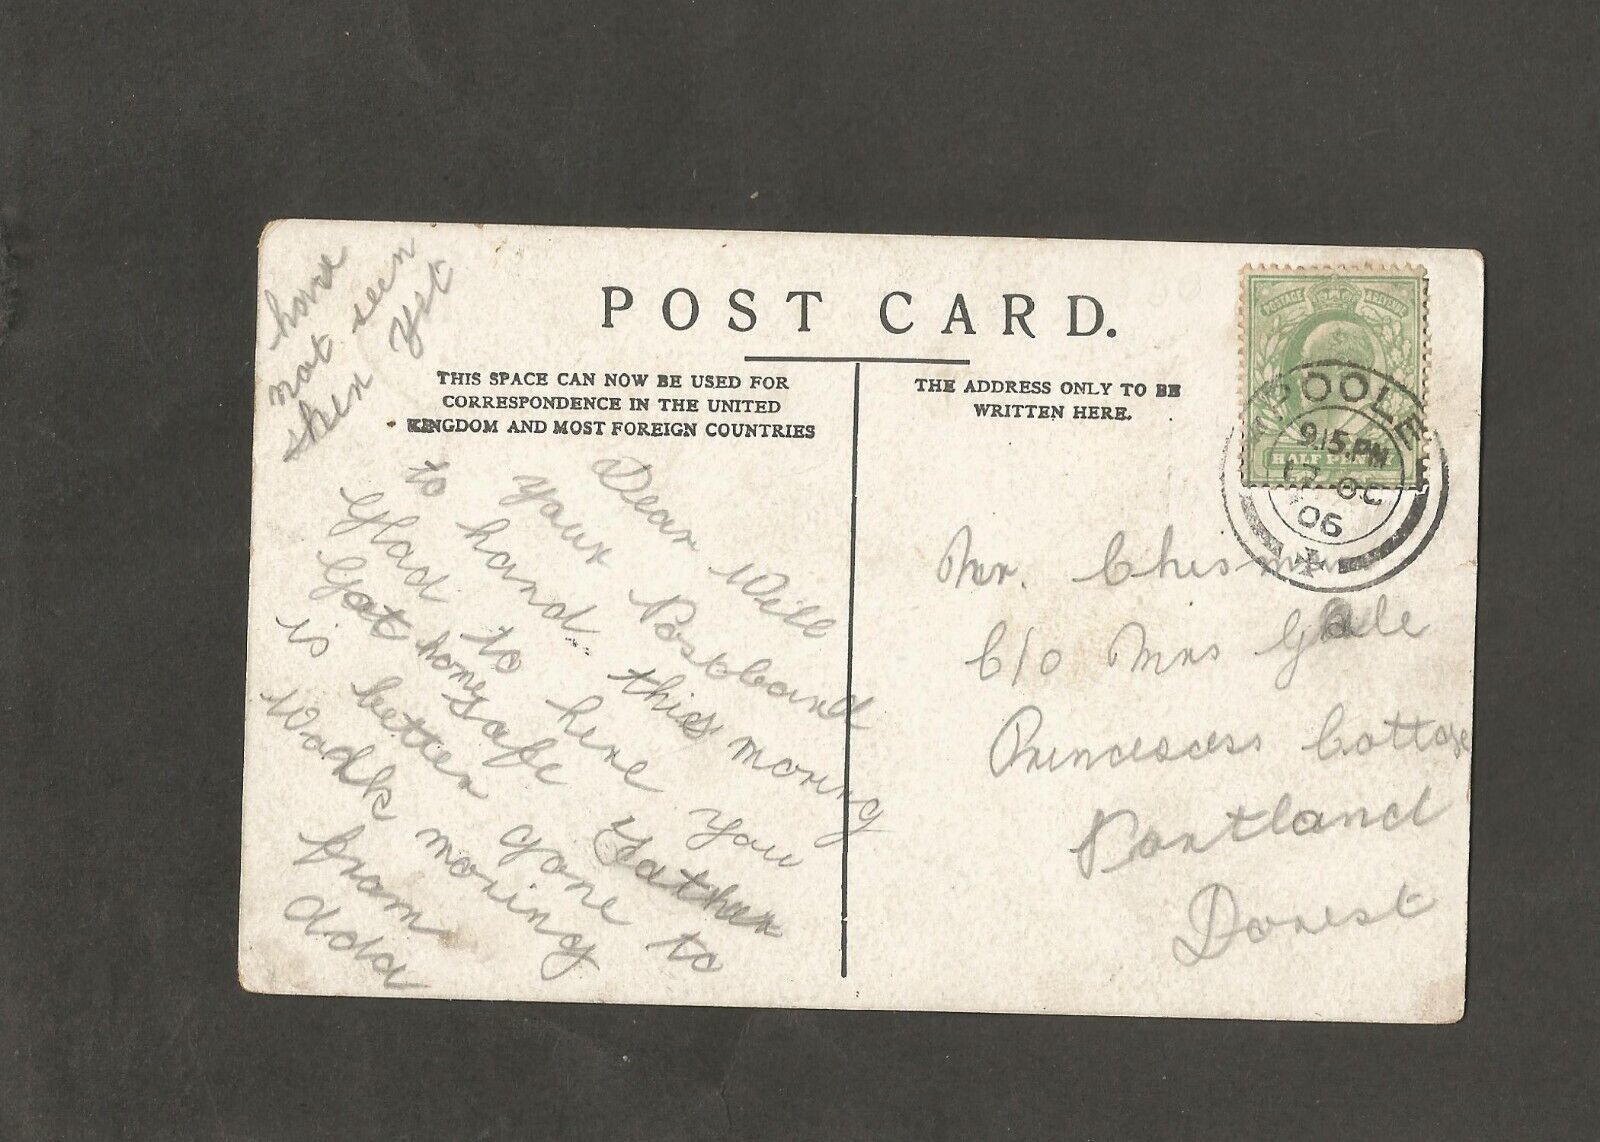 POST CARD.
THIS SPACE CAN NOW BE USED FOR
CORRESPONDENCE IN THE UNITED
KINGDOM AND MOST FOREIGN COUNTRIES
THE ADDRESS ONLY TO BE
WRITTEN HERE.
POSTAGE & REVENUE
HALF PENNY
POOLE
9.15.PM
17 OC
06
Dear Will
your Postcard
to hand this moring
Glad to here you
Got home safe Father
is better gone to
Wodk moring
from
Ada
have
not seen
shen yet
Mr. Chisman
C/o Mrs Gale
Princess Cottage
Portland
Dorest